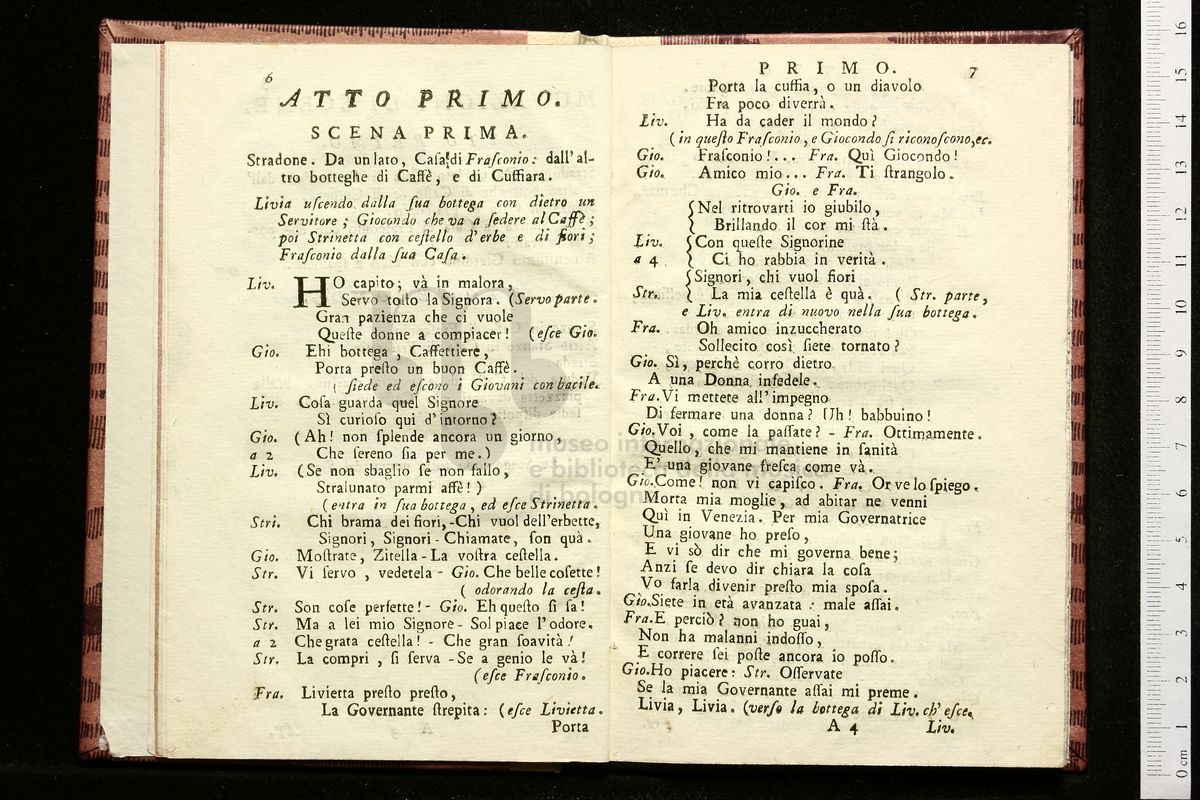 6
ATTO PRIMO.
SCENA PRIMA.
Stradone. Da un lato, Caſa di Fraſconio: dall' al-
tro botteghe di Caffè, e di Cuffiara.
Livia uſcendo dalla ſua bottega con dietro un
Servitore; Giocondo che va a ſedere al Caffè;
poi Strinetta con ceſtello d'erbe e di fiori;
Fraſconio dalla ſua Caſa.
Liv. HO capito; và in malora,
Servo toſto la Signora. (Servo parte.
Gran pazienza che ci vuole
Queſte donne a compiacer! (eſce Gio.
Gio. Ehi bottega, Caffettiere,
Porta preſto un buon Caffè.
( ſiede ed eſcono i Giovani con bacile.
Liv. Coſa guarda quel Signore
Sì curioſo qui d'intorno?
Gio. (Ah! non ſplende ancora un giorno,
a 2 Che ſereno ſia per me.)
Liv. (Se non sbaglio ſe non fallo,
Stralunato parmi affè!)
(entra in ſua bottega, ed eſce Strinetta.
Stri. Chi brama dei fiori,-Chi vuol dell'erbette,
Signori, Signori-Chiamate, ſon quà.
Gio. Moſtrate, Zitella-La voſtra ceſtella.
Str. Vi ſervo, vedetela- Gio. Che belle coſette!
( odorando la ceſta.
Str. Son coſe perfette!- Gio. Eh queſto ſi ſa!
Str. Ma a lei mio Signore- Sol piace l'odore.
a 2 Che grata ceſtella! - Che gran ſoavità!
Str. La compri, ſi ſerva -Se a genio le và!
(eſce Fraſconio.
Fra. Livietta preſto preſto,
La Governante ſtrepita: (eſce Livietta.
Porta
PRIMO. 7
Porta la cuffia, o un diavolo
Fra poco diverrà.
Liv. Ha da cader il mondo?
(in queſto Fraſconio, e Giocondo ſi riconoſcono, ec.
Gio. Fraſconio!... Fra. Quì Giocondo!
Gio. Amico mio... Fra. Ti ſtrangolo.
Gio. e Fra.
Nel ritrovarti io giubilo,
Brillando il cor mi ſtà.
Liv. Con queſte Signorine
a 4 Ci ho rabbia in verità.
Signori, chi vuol fiori
Str. La mia ceſtella è quà. ( Str. parte,
e Liv. entra di nuovo nella ſua bottega.
Fra. Oh amico inzuccherato
Sollecito così ſiete tornato?
Gio. Sì, perchè corro dietro
A una Donna infedele.
Fra. Vi mettete all'impegno
Di fermare una donna? Uh! babbuino!
Gio. Voi, come la paſſate? - Fra. Ottimamente.
Quello, che mi mantiene in ſanità
E' una giovane freſca come và.
Gio. Come! non vi capiſco. Fra. Or ve lo ſpiego.
Morta mia moglie, ad abitar ne venni
Quì in Venezia. Per mia Governatrice
Una giovane ho preſo,
E vi sò dir che mi governa bene;
Anzi ſe devo dir chiara la coſa
Vo farla divenir preſto mia spoſa.
Gio. Siete in età avanzata: male aſſai.
Fra. E perciò? non ho guai,
Non ha malanni indoſſo,
E correre ſei poſte ancora io poſſo.
Gio. Ho piacere: Str. Oſſervate
Se la mia Governante aſſai mi preme.
Livia, Livia. (verſo la bottega di Liv. ch' eſce.
A 4 Liv.
museo internazionale
e biblioteca della musica
di bologna
0 cm 1 2 3 4 5 6 7 8 9 10 11 12 13 14 15 16